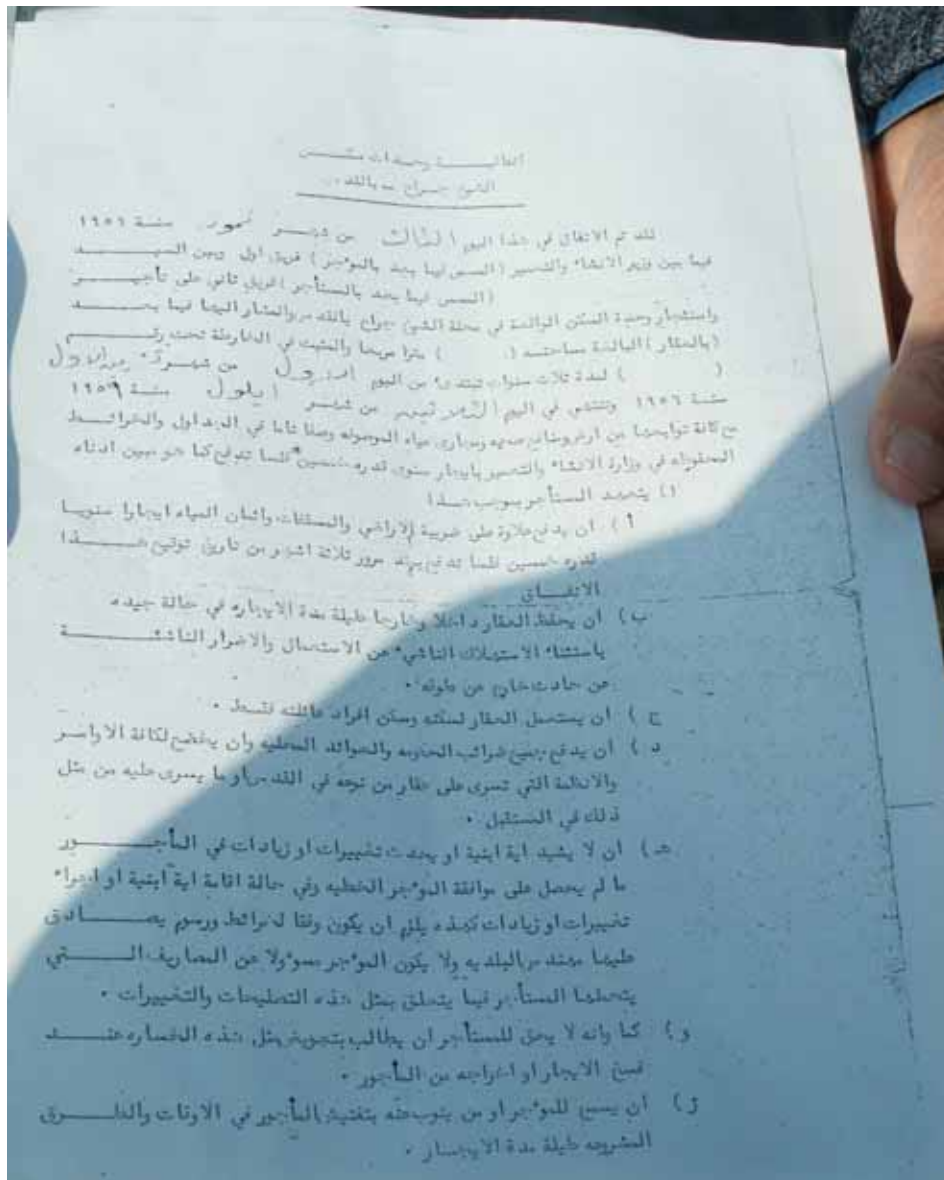 اتفاقيـــــة وحـدات سكـــــن
الشيخ جـراح بالقدس
لقد تم الاتفاق في هذا اليوم الثالث من شهـــر تموز سنـة ١٩٥٦
فيما بين وزير الانشاء والتعمير (المسمى فيما بعد بالموءجر) فريق اول وبين السيـــــد
(المسمى فيما بعد بالمستأجر) فريق ثاني على تأجيـــر
واستئجار وحدة السكن الواقعة في محلة الشيخ جراح بالقدس والمشار اليها فيما بعـــــد
(بالعقار) البالغة مساحتـه ( ) مترا مربعا والمثبت في الخارطة تحت رقـــم
( ) لمدة ثلاث سنوات تبتدىء من اليوم الاول من شهـر
سنـة ١٩٥٦ وتنتهي في اليوم من شهـــر ايلول سنـة ١٩٥٩
مع كافة توابعها من ارض ومجاري مياه الموصوفه وصفا تاما في الجداول والخرائـــط
المحفوظه في وزارة الانشاء والتعمير بايجار سنوي قدره خمسين فلسا تدفع كما هو مبين ادناه
١) يتعهـد المستأجر بموجب هـذا
أ ) ان يدفع علاوة على ضريبة الاراضي والمسقفات واثمان المياه ايجارا سنويـا
قدره خمسين فلسا تدفع بعد مرور ثلاثة اشهر من تاريخ توقيع هـــــذا
الاتفـــاق
ب) ان يحفظ العقار داخلا وخارجا طيلة مدة الايجاره في حالة جيده
باستثناء الاستهلاك الناشيء عن الاستعمال والاضرار الناشئـــــة
عن حادث خارج عن طوقه •
ج ) ان يستعمل العقار لسكنه وسكن افراد عائلته فقـط •
د ) ان يدفع جميع ضرائب الحكومه والعوائد المحليه وان يخضع لكافة الاوامـر
والانظمة التي تسرى على عقار من نوعه في القدس او ما يسرى عليه من مثل
ذلك في المستقبل •
هـ ) ان لا يشيد اية ابنية او يحدث تغييرات او زيادات في المأجـــــور
ما لم يحصل على موافقة الموءجر الخطيه وفي حالة اقامة اية ابنية او اجراء
تغييرات او زيادات كهذه يلزم ان يكون وفقا لخرائط ورسوم يصـــادق
عليها مهندس البلديه ولا يكون الموءجر مسوءولا عن المصاريف الـــــتي
يتحملها المستأجر فيما يتعلق بمثل هذه التصليحات والتغييرات •
و ) كما وانه لا يحق للمستأجر ان يطالب بتعويض مثل هذه الخساره عنـــد
فسخ الايجار او اخراجه من المأجور •
ز ) ان يسمح للموءجر او من ينوب عنه بتفتيش المأجور في الاوقات والطـــرق
المشروعه طيلة مدة الايجـــار •